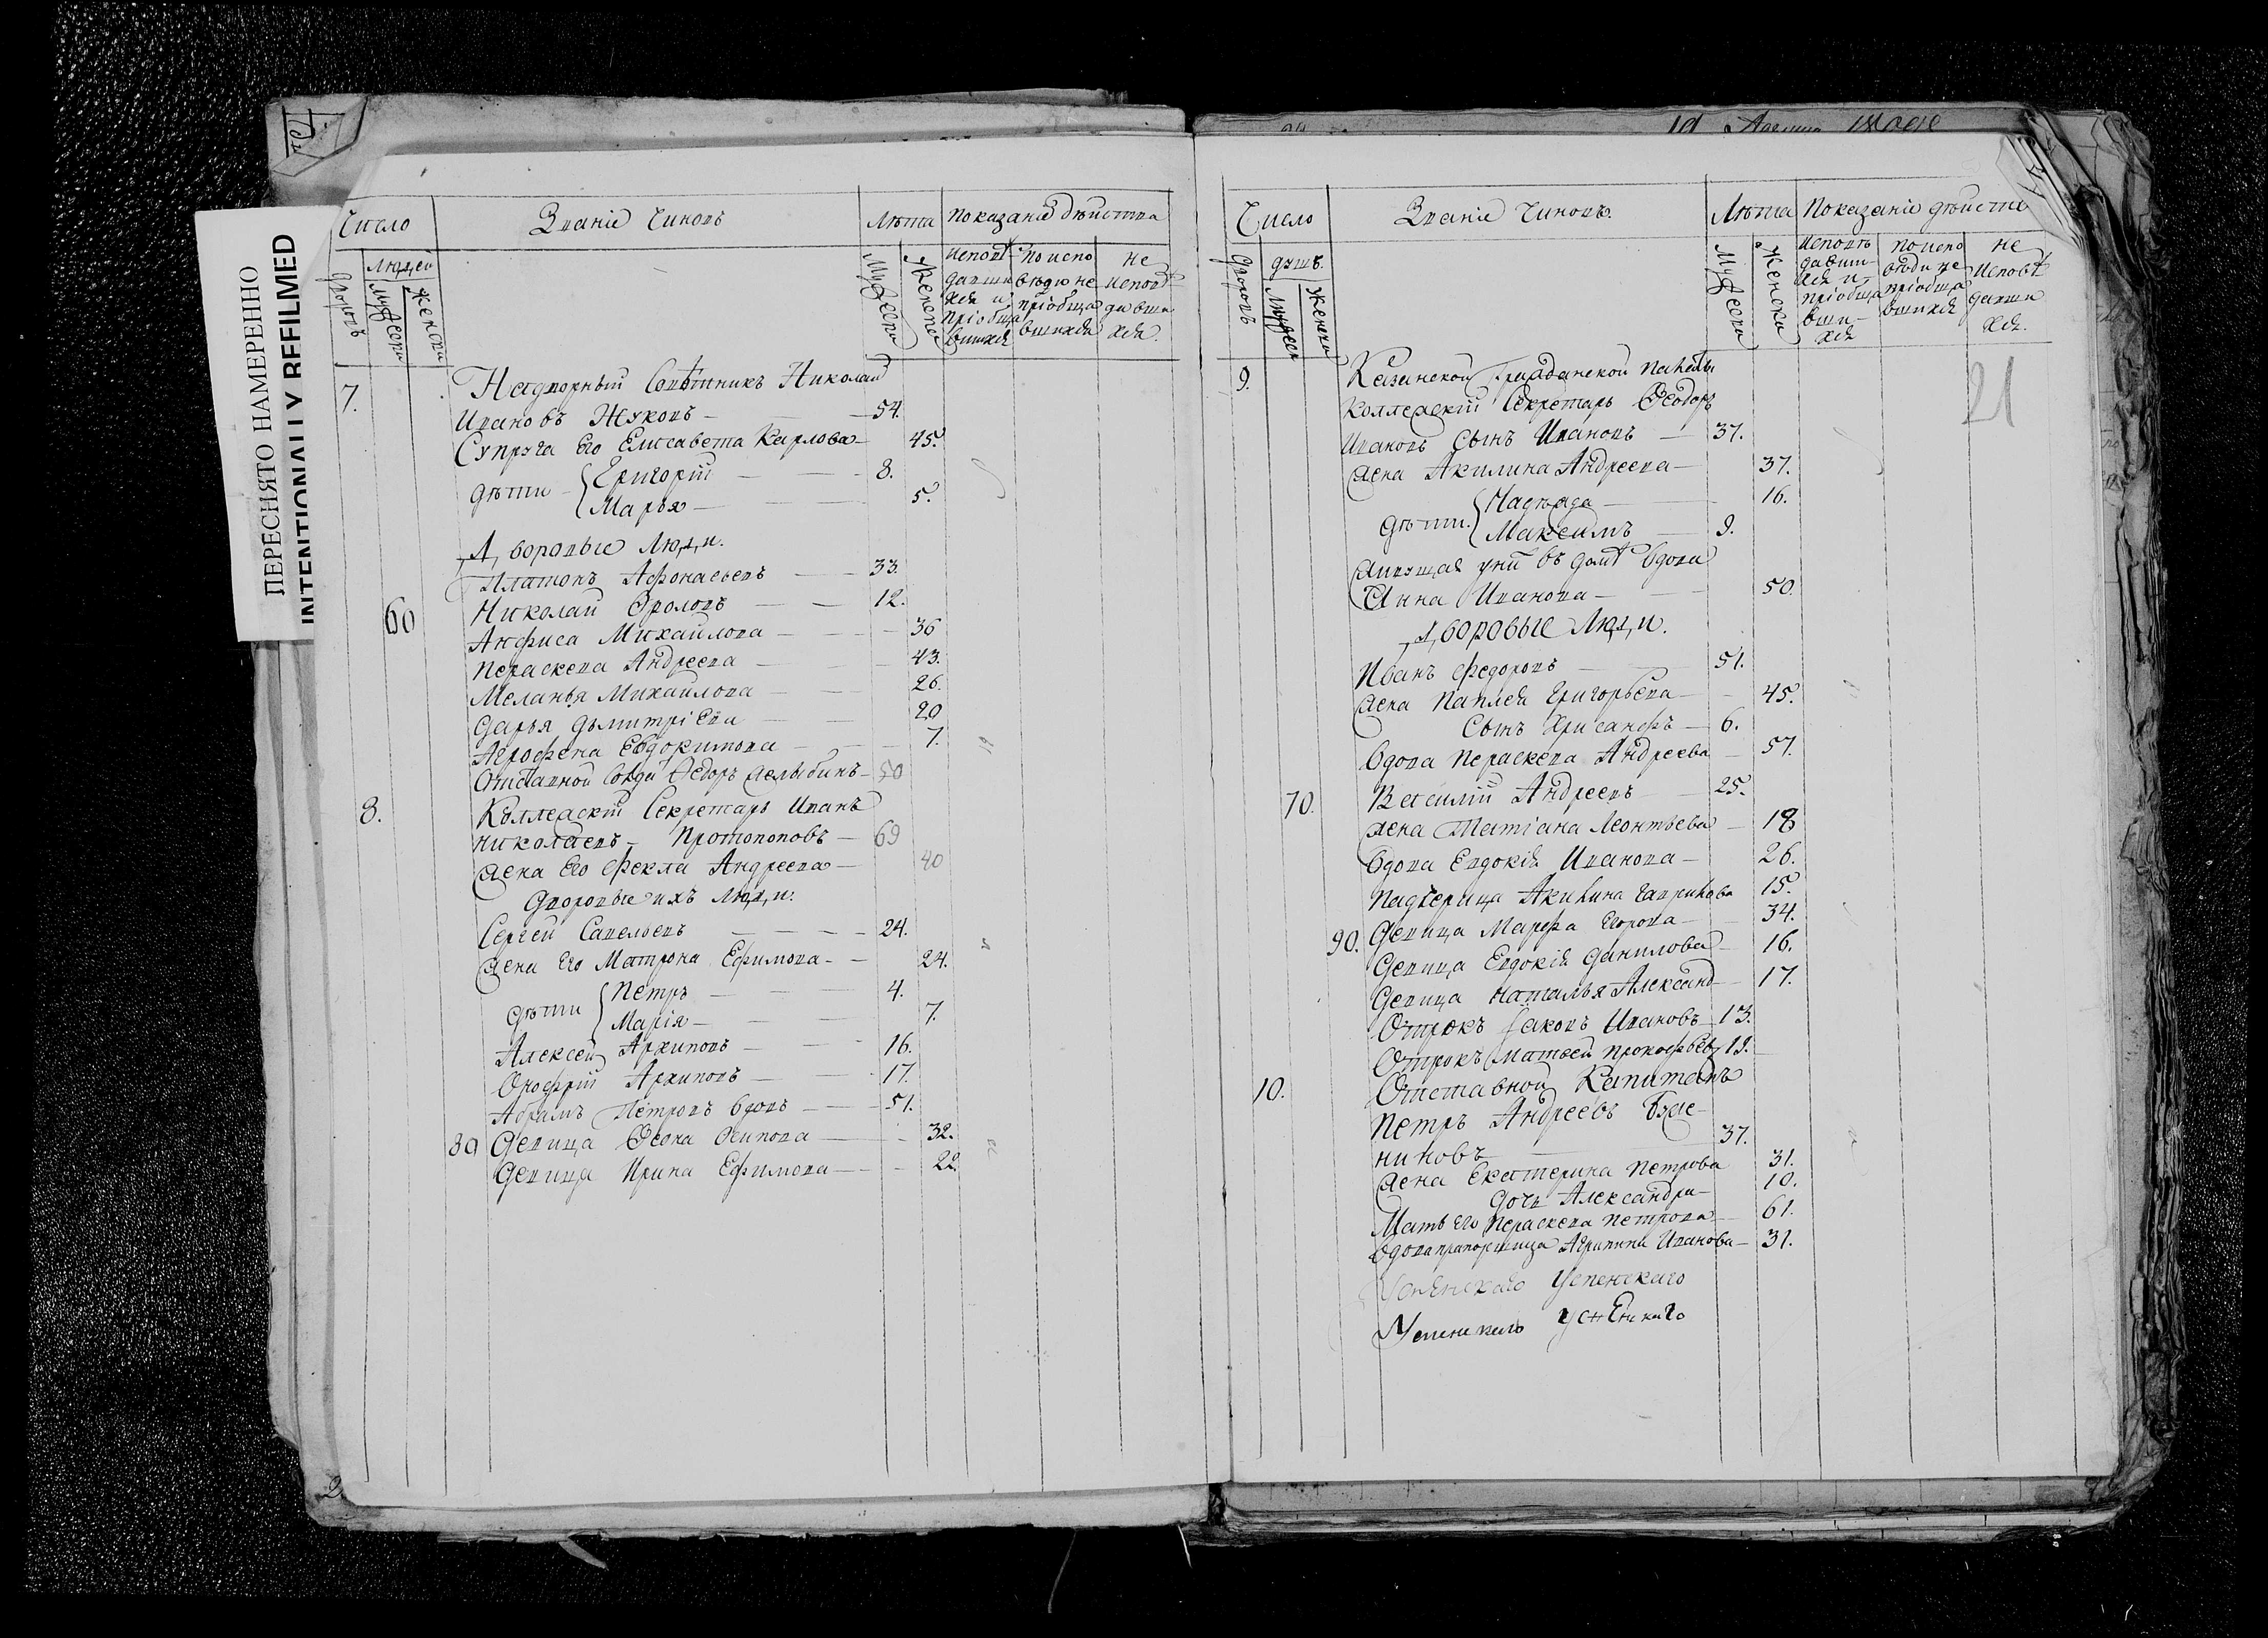 ПЕРЕСНЯТО НАМЕРЕННО
INTENTIONALLY REFILMED
Число Званіе Чиновъ Лѣта Показаніе дѣйства
Дворовъ Людей Мужеска Женска Мужеска Женска
Исповѣдавшихся и пріобщавшихся По исповѣди не пріобщавшихся Не исповѣдавшихся
7. Надворный Совѣтникъ Николай
Ивановъ Жуковъ 54.
Супруга Его Елисавета Карлова 45.
дѣти Григорій 8.
Марья 5.
Дворовые Люди.
Платонъ Афонасьевъ 33.
60 Николай Фроловъ 12.
Анфиса Михайлова 36
Пераскева Андреева 43.
Меланья Михайлова 26.
Дарья Дьмитріева 20
Агрофена Евдокимова 7.
Отставной Федоръ 50
8. Коллежскій Секретарь Иванъ
Николаевъ Протопоповъ 69
Жена Его Фекла Андреева 40
Дворовые ихъ Люди.
Сергей Савельевъ 24.
Жена Его Матрона Ефимова 24.
дѣти Петръ 4.
Марія 7.
Алексей Архиповъ 16.
Онофрій Архиповъ 17.
Абрамъ Петровъ вдовъ 51.
80 Девица Ѳеона Осипова 32.
Девица Ирина Ефимова 22.
Число Званіе Чиновъ. Лѣта Показаніе дѣйства
Дворовъ душъ. Мужеска Женска Мужеска Женска
Исповѣдавшихся и пріобщавшихся По исповѣди не пріобщавшихся Не исповѣдавшихся.
21
9. Казанской Гражданской Палаты
Коллежскій Секретарь Ѳеодоръ
Ивановъ Сынъ Ивановъ 37.
Жена Акилина Андреева 37.
дѣти. Надежда 16.
Максимъ 9.
Живущая у них въ домѣ вдова
Анна Иванова 50.
Дворовые Люди.
Иванъ Федоровъ 51.
Жена Павлея Григорьева 45.
Сынъ Хрисанфъ 6.
Вдова Пераскева Андреева 57.
70. Василій Андреевъ 25.
Жена Татіана Леонтьева 18
Вдова Евдокія Иванова 26.
Падчерица Акилина Гаврилова 15.
90. Девица Марфа Егорова 34.
Девица Евдокія Данилова 16.
Девица Наталья Александ 17.
Отрокъ Іаковъ Ивановъ 13.
Отрокъ Матвей Прокофьевъ 12.
10. Отставной Капитанъ
Петръ Андреевъ
новъ 37.
Жена Екатерина Петрова 31.
Дочь Александра 10.
Мать Его Пераскева Петрова 61.
Вдова прапорщица Агрипина Иванова 31.
Успенскаго Успенскаго
Успенскаго